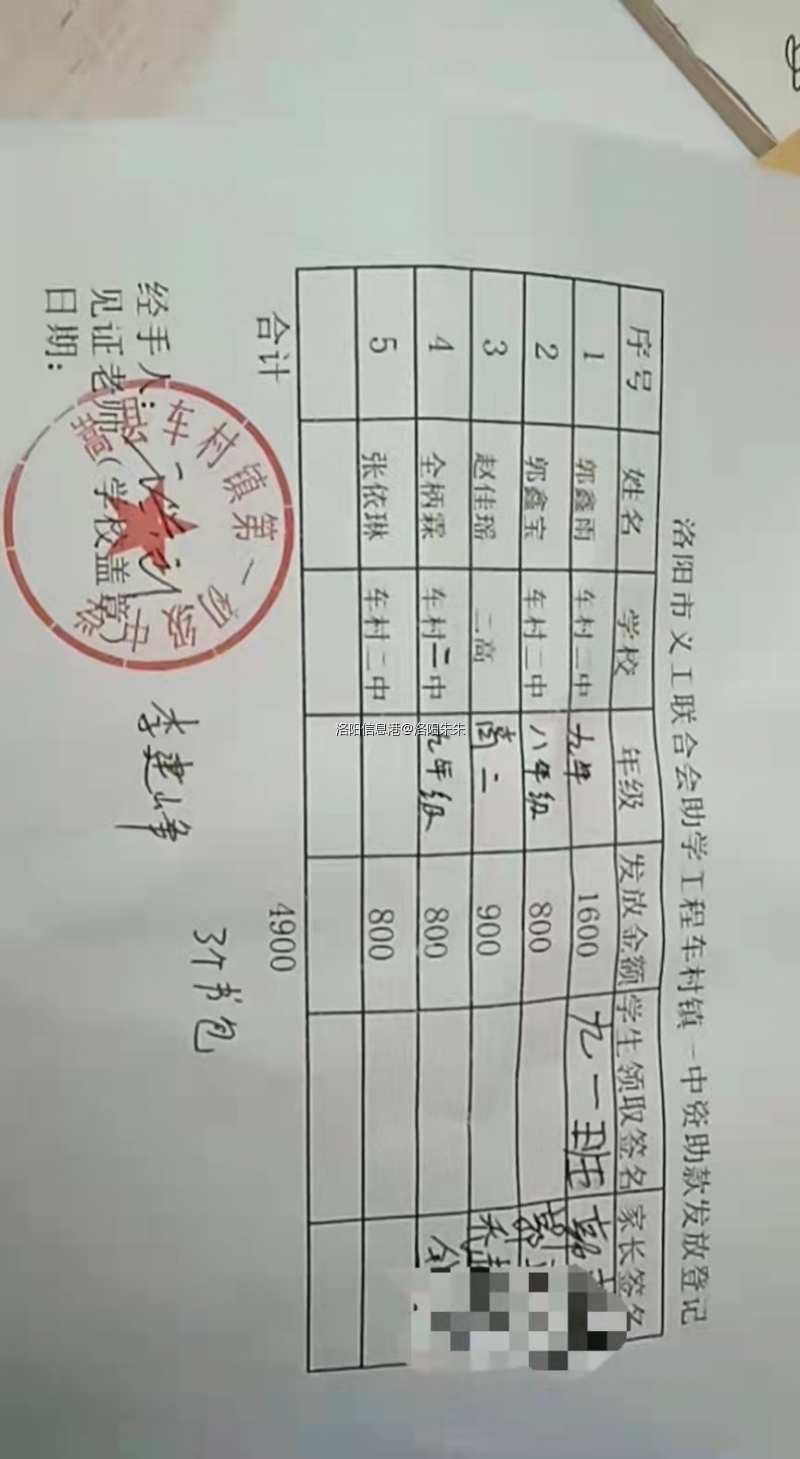 洛阳市义工联合会助学工程车村镇一中资助款发放登记
序号 姓名 学校 年级 发放金额 学生领取签名 家长签名
1 郭鑫雨 车村二中 九年 1600 九一班 郭
2 郭鑫宝 车村二中 八年级 800 郭
3 赵佳瑶 二高 高二 900
4 全柄霖 车村二中 九年级 800 全
5 张依琳 车村二中 800
合计 4900
3个书包
经手人：
见证老师（学校盖章 李建峰
日期：
车村镇第一初级中
洛阳信息港@洛阳朱朱